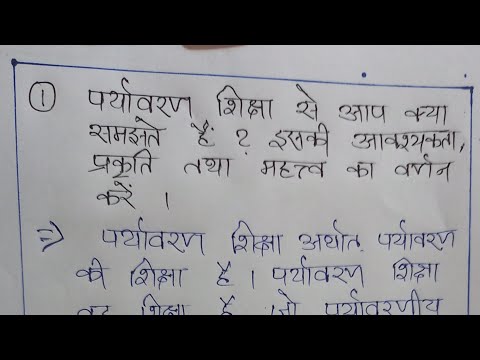 ① पर्यावरण शिक्षा से आप क्या
समझते हैं ? इसकी आवश्यकता,
प्रकृति तथा महत्त्व का वर्णन
करें ।
⇒ पर्यावरण शिक्षा अर्थात् पर्यावरण
की शिक्षा है । पर्यावरण शिक्षा
वह शिक्षा है जो पर्यावरणीय